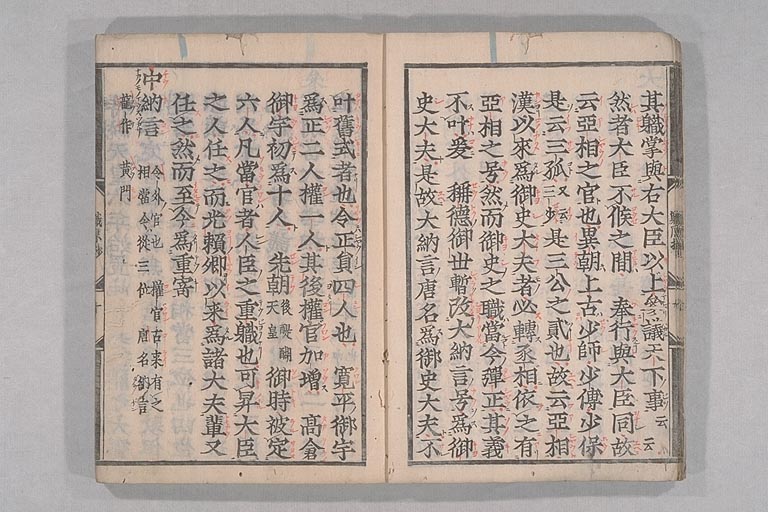 其職掌與右大臣以上參議天下事云云
然者大臣不候之間 奉行與大臣同故
云亞相之官也異朝上古少師少傅少保
是云三孤又云三少是三公之貳也故云亞相
漢以來爲御史大夫者必轉丞相依之有
亞相之号然而御史之職當今彈正其義
不叶爰 稱德御世暫改大納言号爲御
史大夫是故大納言唐名爲御史大夫不
叶舊式者也令正員四人也 寬平御宇
爲正二人權一人其後權官加增 高倉
御宇初爲十人 先朝後醍醐天皇 御時被定
六人凡當官者人臣之重職也可昇大臣
之人任之而光賴卿以來爲諸大夫輩又
任之然而至今爲重寄
中納言 令外官也 權官古來有之
相當令從三位 唐名
龍作 黄門